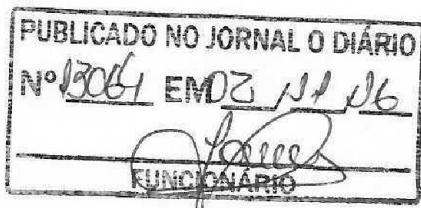 PUBLICADO NO JORNAL O DIÁRIO
Nº 13064 EM 02 / 11 / 16
FUNCIONÁRIO